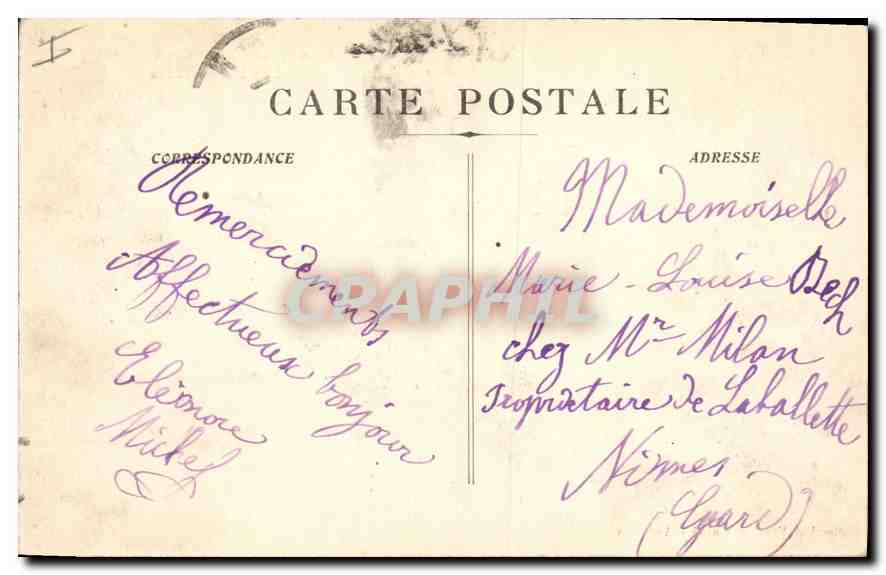 CARTE POSTALE
CORRESPONDANCE
Remerciements
Affectueux bonjour
Eléonore
Michel
ADRESSE
Mademoiselle
Marie-Louise Bech
chez Mr Milan
Propriétaire de Laballette
Nimes
(Gard)
CPAPHIL